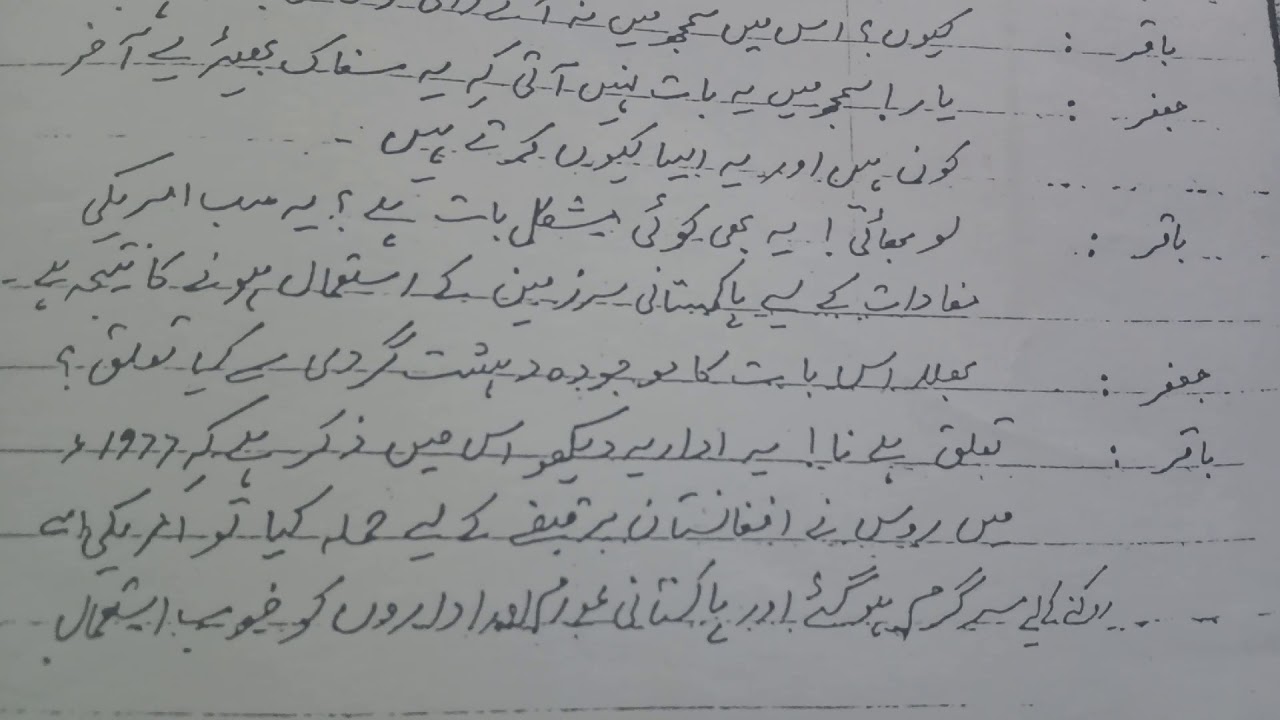 باقر : کیوں؟ اس میں سمجھ میں نہ آنے والی
جعفر : یار! سمجھ میں یہ بات نہیں آتی کہ یہ سفاک بھیڑیے آخر
کون ہیں اور یہ ایسا کیوں کرتے ہیں ۔
باقر : لو بھائی! یہ بھی کوئی مشکل بات ہے؟ یہ سب امریکی
مفادات کے لیے پاکستانی سرزمین کے استعمال ہونے کا نتیجہ ہے۔
جعفر : بھلا اس بات کا موجودہ دہشت گردی سے کیا تعلق؟
باقر : تعلق ہے نا! یہ اداریہ دیکھو اس میں ذکر ہے کہ 1977ء
میں روس نے افغانستان پر قبضے کے لیے حملہ کیا تو امریکی اسے
روکنے کے لیے سرگرم ہو گئے اور پاکستانی عوام اور اداروں کو خوب استعمال